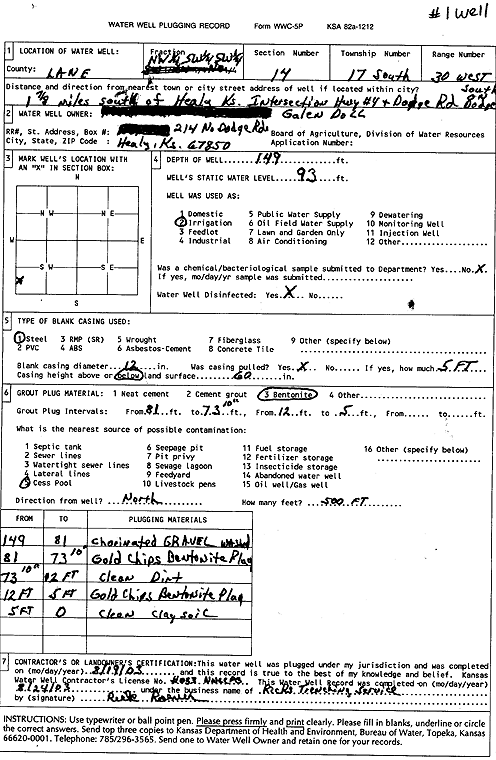 #1 Well
WATER WELL PLUGGING RECORD Form WWC-5P KSA 82a-1212
1 LOCATION OF WATER WELL: Fraction Section Number Township Number Range Number
County: LANE NW¼ SW¼ SW¼ 14 17 South 30 West
Distance and direction from nearest town or city street address of well if located within city? South
1 7/8 miles south of Healy Ks. Intersection Hwy #4 + Dodge Rd Dodge
2 WATER WELL OWNER: Galen Doll
RR#, St. Address, Box #: 214 N. Dodge Rd Board of Agriculture, Division of Water Resources
City, State, ZIP Code : Healy, Ks. 67850 Application Number:
3 MARK WELL'S LOCATION WITH AN "X" IN SECTION BOX:
N
N W N E
W E
S W S E
X
S
4 DEPTH OF WELL 149 ft.
WELL'S STATIC WATER LEVEL 93
WELL WAS USED AS:
1 Domestic 5 Public Water Supply 9 Dewatering
2 Irrigation 6 Oil Field Water Supply 10 Monitoring Well
3 Feedlot 7 Lawn and Garden Only 11 Injection Well
4 Industrial 8 Air Conditioning 12 Other
Was a chemical/bacteriological sample submitted to Department? Yes No X
If yes, mo/day/yr sample was submitted
Water Well Disinfected: Yes X No
5 TYPE OF BLANK CASING USED:
1 Steel 3 RMP (SR) 5 Wrought 7 Fiberglass 9 Other (specify below)
2 PVC 4 ABS 6 Asbestos-Cement 8 Concrete Tile
Blank casing diameter 12 in. Was casing pulled? Yes X No If yes, how much 5 FT
Casing height above or below land surface 60 in.
6 GROUT PLUG MATERIAL: 1 Neat cement 2 Cement grout 3 Bentonite 4 Other
Grout Plug Intervals: From 81 ft. to 73 10" ft., From 12 ft. to 5 ft., From to ft.
What is the nearest source of possible contamination:
1 Septic tank 6 Seepage pit 11 Fuel storage 16 Other (specify below)
2 Sewer lines 7 Pit privy 12 Fertilizer storage
3 Watertight sewer lines 8 Sewage lagoon 13 Insecticide storage
4 Lateral lines 9 Feedyard 14 Abandoned water well
5 Cess Pool 10 Livestock pens 15 Oil well/Gas well
Direction from well? North How many feet? 500 FT
FROM TO PLUGGING MATERIALS
149 81 Chorinated GRAVEL washed
81 73 10" Gold Chips Bentonite Plag
73 10" 12 FT Clean Dirt
12 FT 5 FT Gold Chips Bentonite Plag
5 FT 0 Clean clay soil
7 CONTRACTOR'S OR LANDOWNER'S CERTIFICATION: This water well was plugged under my jurisdiction and was completed
on (mo/day/year) 8/19/03 and this record is true to the best of my knowledge and belief. Kansas
Water Well Contractor's License No. This Water Well Record was completed on (mo/day/year)
8/24/03 under the business name of Ricks Trenching Service
by (signature) Rick
INSTRUCTIONS: Use typewriter or ball point pen. Please press firmly and print clearly. Please fill in blanks, underline or circle
the correct answers. Send top three copies to Kansas Department of Health and Environment, Bureau of Water, Topeka, Kansas
66620-0001. Telephone: 785/296-3565. Send one to Water Well Owner and retain one for your records.